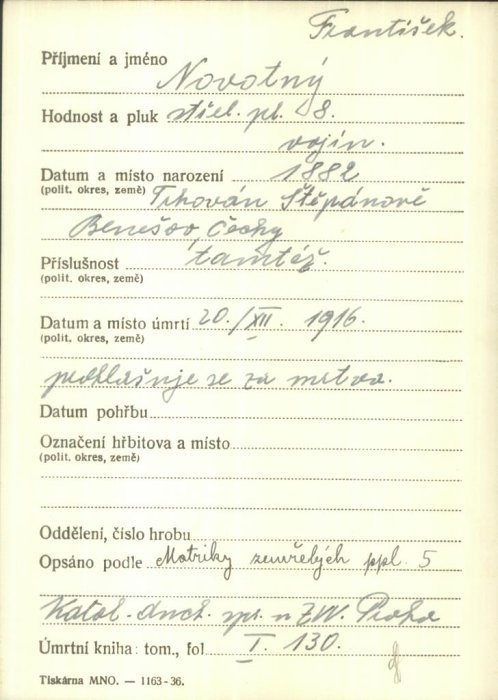 František.
Příjmení a jméno Novotný
Hodnost a pluk střel. pl. 8.
vojín.
Datum a místo narození 1882
(polit. okres, země) Trhován Štěpánově
Benešov, Čechy
Příslušnost tamtéž.
(polit. okres, země)
Datum a místo úmrtí 20./XII. 1916.
(polit. okres, země)
prohlašuje se za mrtva.
Datum pohřbu
Označení hřbitova a místo
(polit. okres, země)
Oddělení, číslo hrobu
Opsáno podle Matriky zemřelých ppl. 5
Katol. duch. spr. u ZVV. Praha
Úmrtní kniha: tom., fol I. 130.
Tiskárna MNO. — 1163-36.